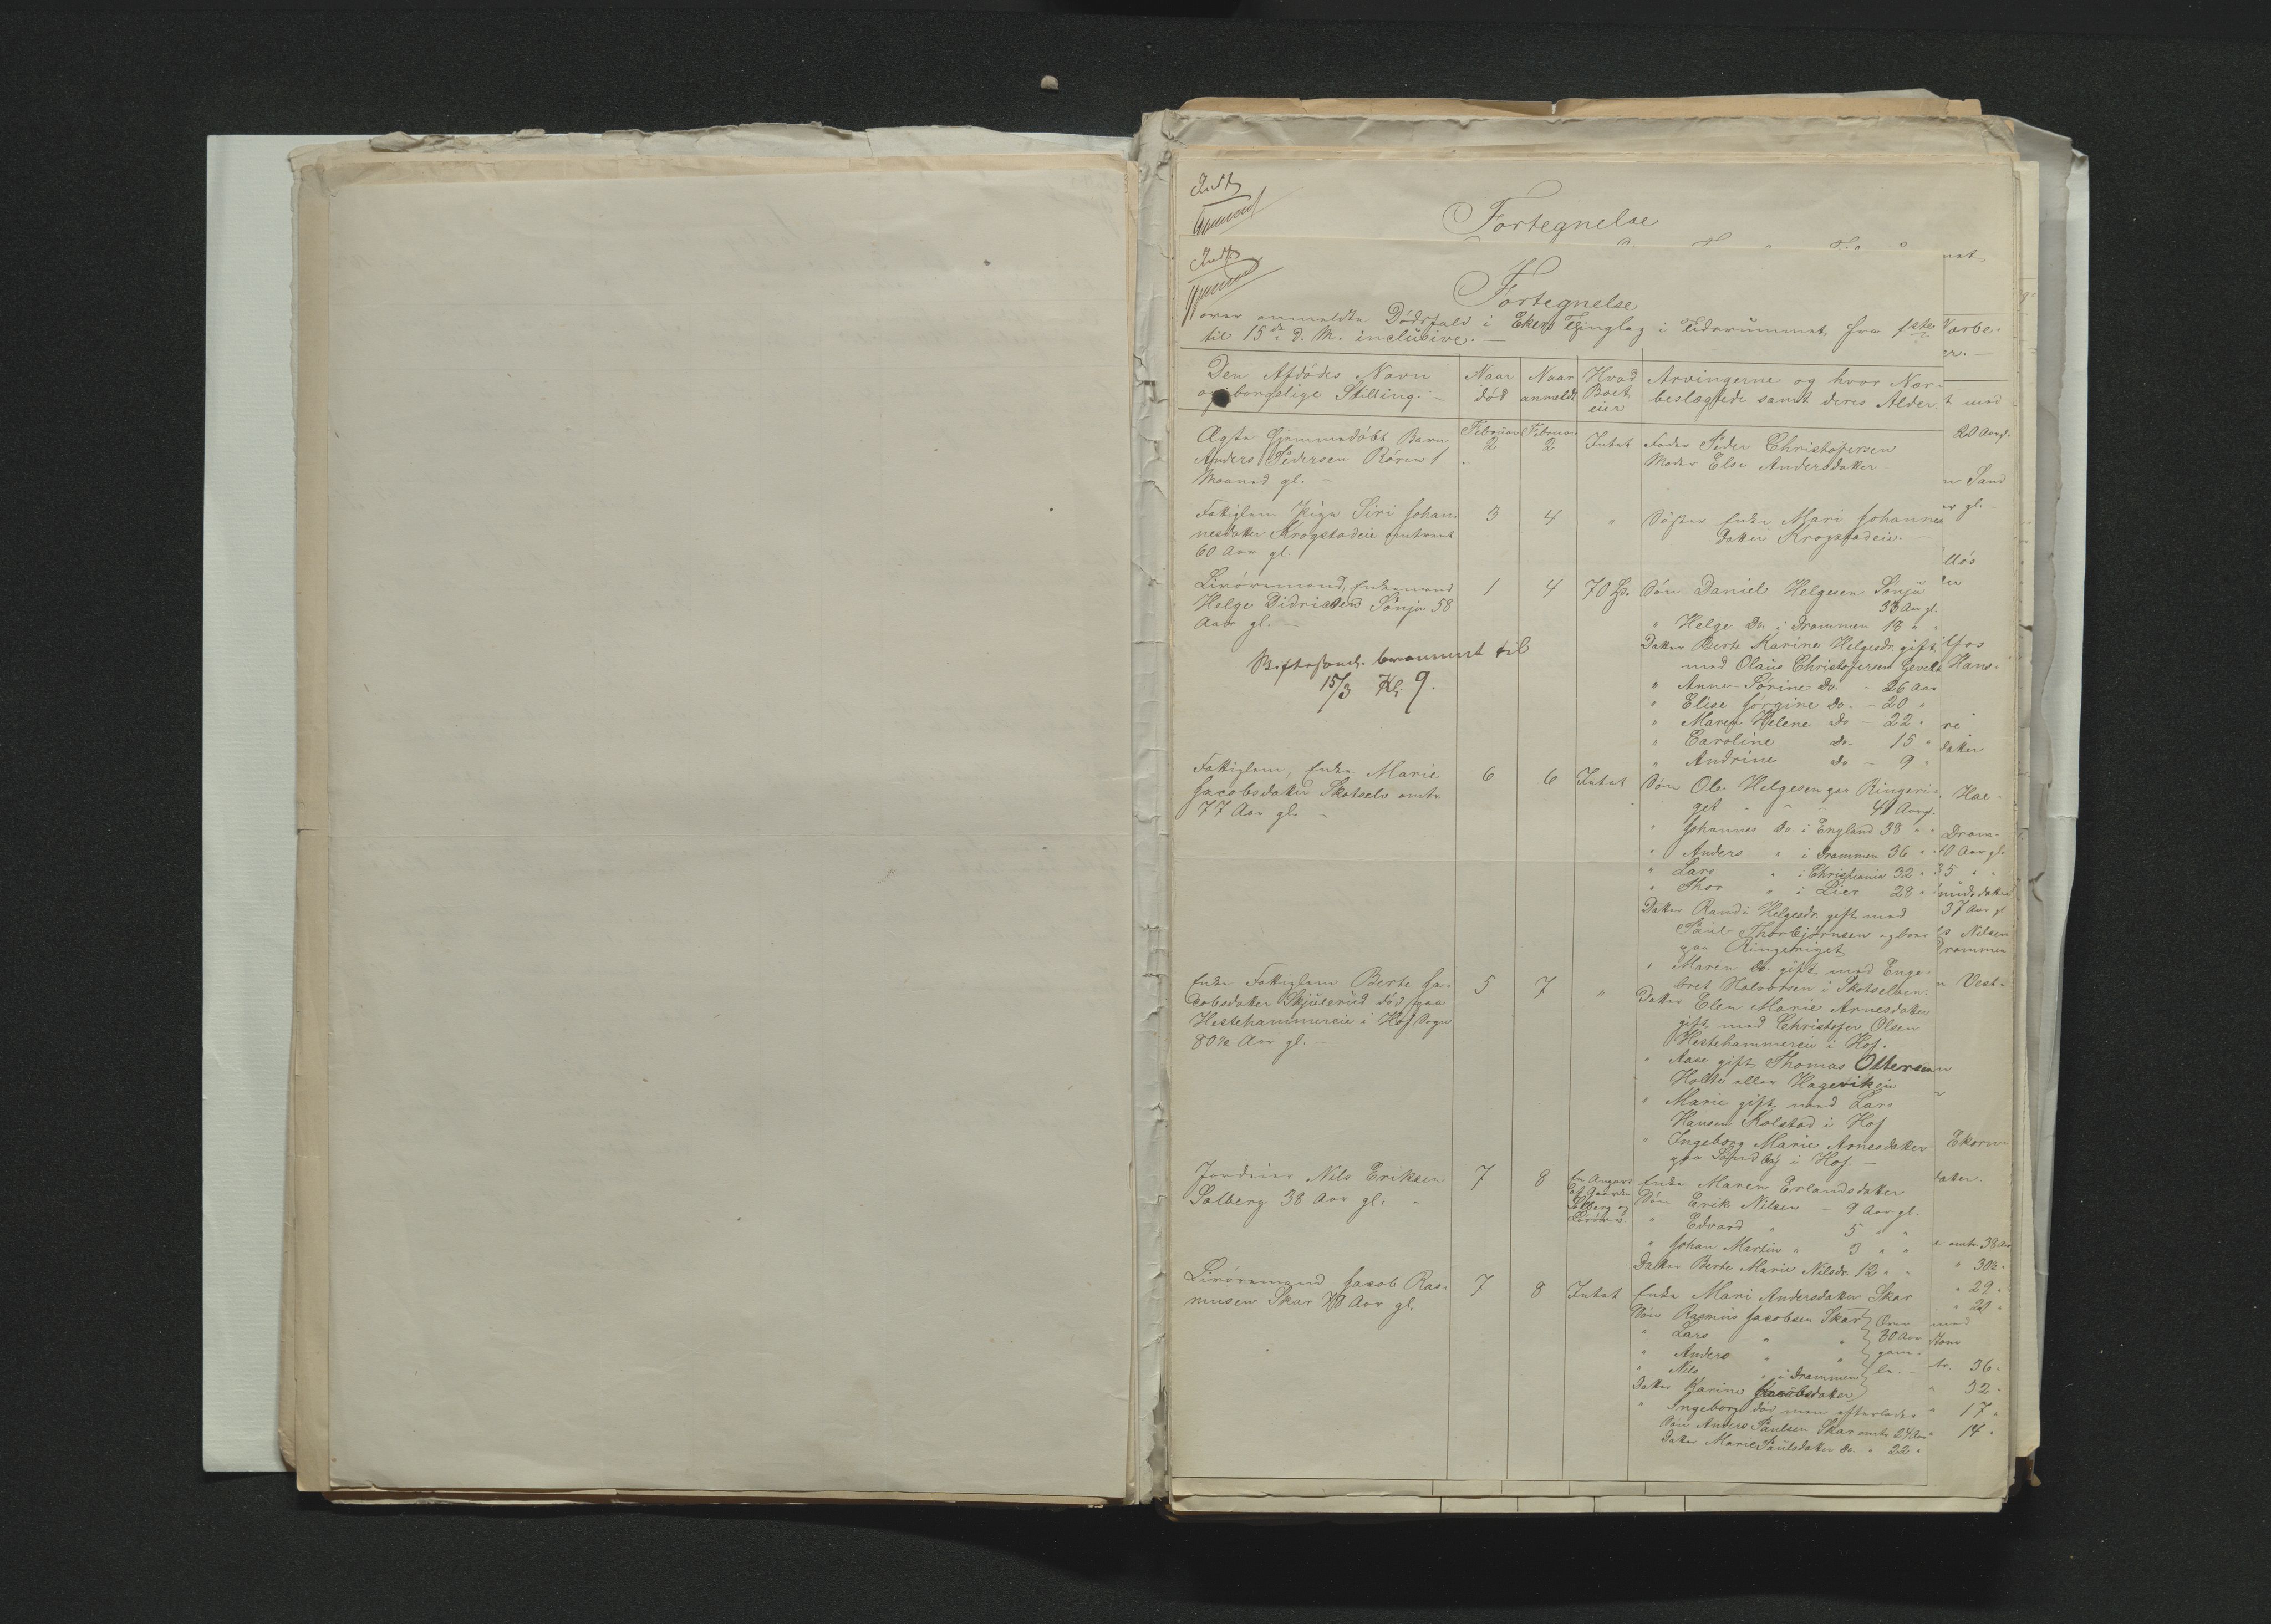 Fortegnelse
Fortegnelse
over anmeldte Dødsfald i Ekers Thinglag i Tidsrummet fra 1ste
til 15de d. M. inclusive. —
Den Afdødes Navn
og borgelige Stilling. —
Naar
død
Naar
anmeldt
Hvad
Boet
eier
Arvingerne og hvor Nær-
beslægtede samt deres Alder.
Ægte hjemmedøbt Barn
Anders Pedersen Røren 1
Maaned gl. —
Februar
2
Februar
2
Intet
Fader Peder Christofersen
Moder Else Andersdatter
Fattiglem Pige Siri Johan-
nesdatter Krogstadeie omtrent
60 Aar gl.
3
4
"
Søster Enke Mari Johannes
Datter Krogstadeie. —
Livøremand, Enkemand
Helge Didriksen Sønju 58
Aar gl. —
1
4
70 Sp.
Søn Daniel Helgesen Sønju
33 Aar gl.
" Helge Do. i Drammen 18 " "
Datter Berte Karine Helgesdr. gift
med Olaus Christofersen Gevelt
" Anne Sørine Do. - 26 Aar
" Elise Jørgine Do. - 20 "
" Maren Helene Do - 22 "
" Caroline Do. 15 "
" Andrine Do - 9 "
Skiftesaml. berammet til
15/3 Kl. 9.
Fattiglem, Enke Marie
Jacobsdatter Skotselv omtr.
77 Aar gl. —
6
6
Intet
Søn Ole Helgesen paa Ringeri-
get - 41 Aar gl.
" Johannes Do. i England 38 " "
" Anders " i Drammen 36 "
" Lars " i Christiania 32 "
" Thor " i Lier 28 "
Datter Randi Helgesdr. gift med
Paul Thorbjørnsen og boer
paa Ringeriget
" Maren Do. gift med Enge-
bret Halvorsen i Skotselven.
Enke Fattiglem Berte Ja-
cobsdatter Skjulerud død paa
Hestehammereie i Hof Sogn
80½ Aar gl. —
5
7
"
Datter Elen Marie Arnesdatter
gift med Christofer Olsen
Hestehammereie i Hof.
" Aase gift Thomas Ottersen
Holte eller Hagevikeie
" Marie gift med Lars
Hansen Kolstad i Hof
" Ingeborg Marie Arnesdatter
paa Sundby i Hof. —
Jordeier Nils Eriksen
Solberg 38 Aar gl. -
7
8
En Anpart
af Gaarden
Solberg og
Enke Maren Erlandsdatter
Søn Erik Nilsen - 9 Aar gl.
" Edvard " 5 " "
" Johan Martin " 3 " "
Datter Berte Marie Nilsdr. 12 " "
Livøremand Jacob Ras-
musen Skar 79 Aar gl.
7
8
Intet
Enke Mari Andersdatter Skar
Søn Rasmus Jacobsen Skar
" Lars " "
" Anders " "
" Nils " i Drammen
Datter Karine Jacobsdatter
Over
30 Aar
gam-
le. -
" Ingeborg død men efterlader
Søn Anders Paulsen Skar omtr. 24 Aar
Datter Marie Paulsdatter Do. " 22 "
med
20 Aar gl.
Sand
gl. -
Hans-
datter
Drom-
40 Aar gl.
35 " "
37 Aar gl.
Nilsen
Drammen
Vest-
Ekorn-
datter.
omtr. 38 Aar
29 "
med
36 "
32 "
17 "
14 "